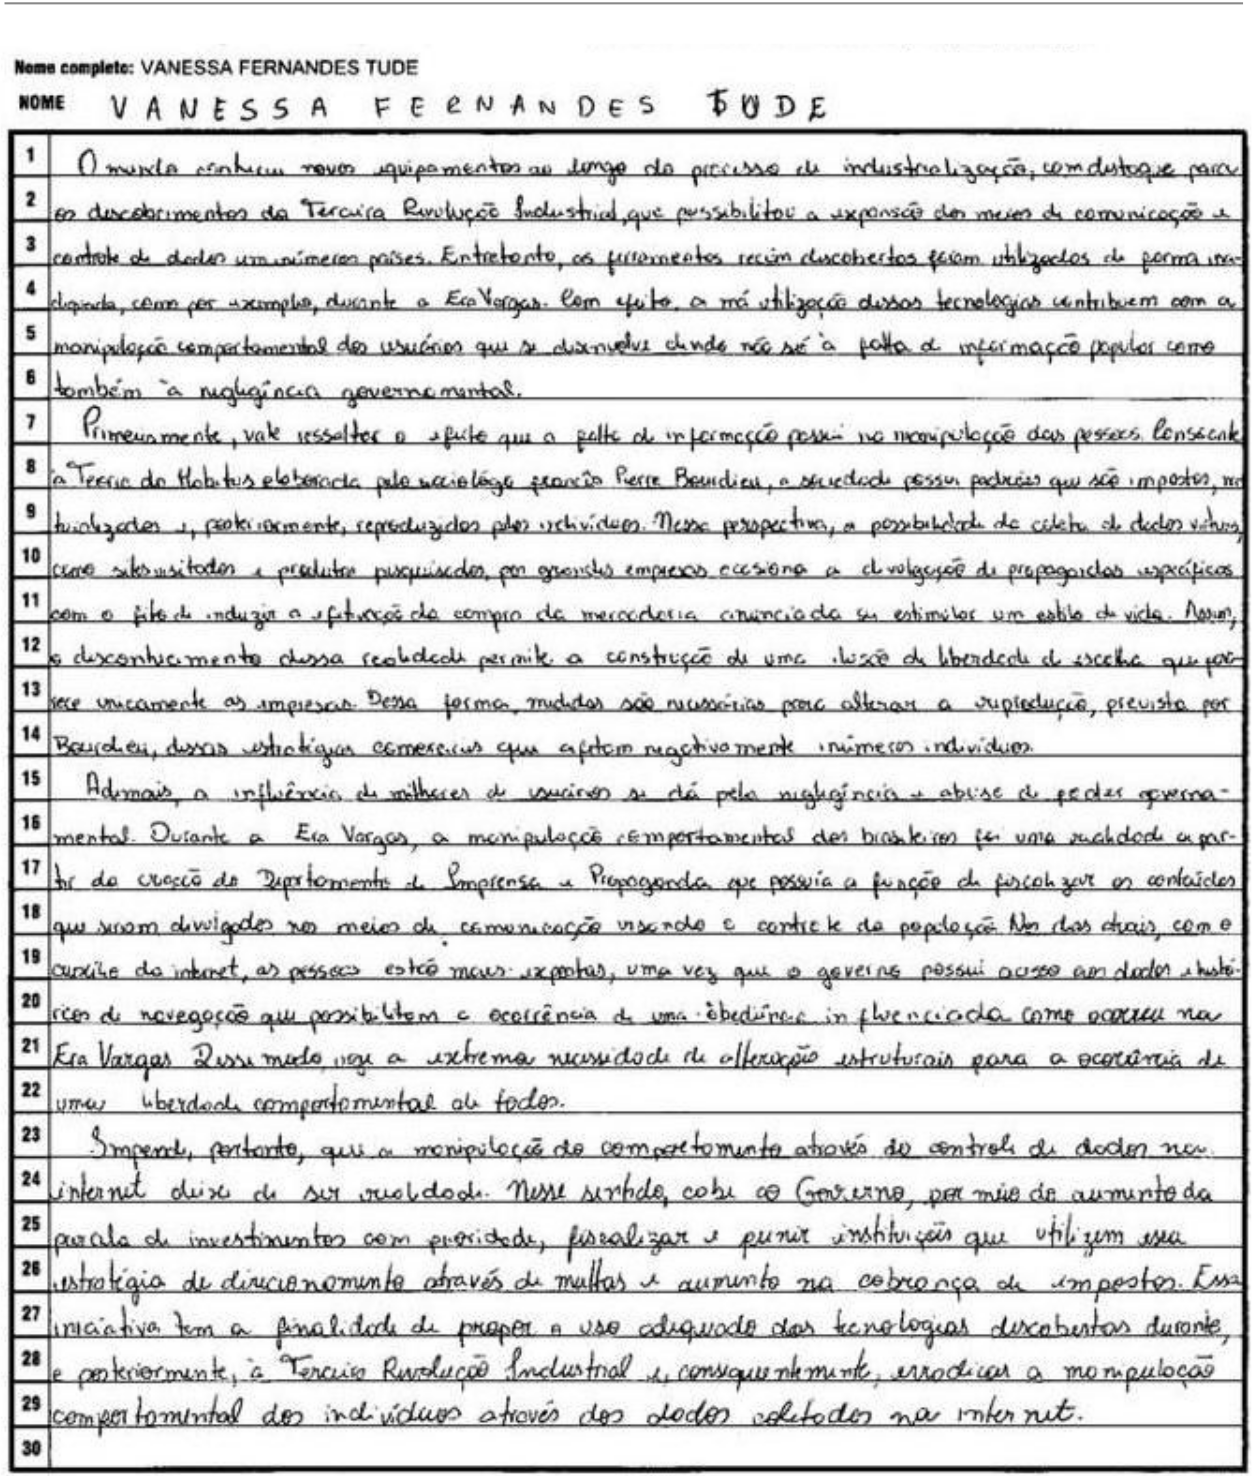 Nome completo: VANESSA FERNANDES TUDE
NOME VANESSA FERNANDES TUDE
1 O mundo conheceu novos equipamentos ao longo do processo de industrialização, com destaque para
2 os descobrimentos da Terceira Revolução Industrial, que possibilitou a expansão dos meios de comunicação e
3 controle de dados em inúmeros países. Entretanto, as ferramentas recém descobertas foram utilizadas de forma ina-
4 dequada, como por exemplo, durante a Era Vargas. Com efeito, a má utilização dessas tecnologias contribuem com a
5 manipulação comportamental dos usuários que se desenvolve devido não só à falta de informação popular como
6 também à negligência governamental.
7 Primeiramente, vale ressaltar o efeito que a falta de informação possui na manipulação das pessoas. Consoante
8 à Teoria do Habitus elaborada pelo sociológo francês Pierre Bourdieu, a sociedade possui padrões que são impostos, na
9 turalizados e, posteriormente, reproduzidos pelos indivíduos. Nessa perspectiva, a possibilidade da coleta de dados virtuais,
10 como sites visitados e produtos pesquisados, por grandes empresas ocasiona a divulgação de propagandas específicas
11 com o fito de induzir a efetivação da compra da mercadoria anunciada ou estimular um estilo de vida. Assim,
12 o desconhecimento dessa realidade permite a construção de uma ilusão de liberdade de escolha que favo-
13 rece unicamente as empresas. Dessa forma, medidas são necessárias para alterar a reprodução, prevista por
14 Bourdieu, dessas estratégias comerciais que afetam negativamente inúmeros indivíduos.
15 Ademais, a influência de milhares de usuários se dá pela negligência e abuso de poder governa-
16 mental. Durante a Era Vargas, a manipulação comportamental dos brasileiros foi uma realidade a par-
17 tir da criação do Departamento de Imprensa e Propaganda que possuia a função de fiscalizar os conteúdos
18 que seriam divulgados nos meios de comunicação visando o controle da população. Nos dias atuais, com o
19 auxílio da internet, as pessoas estão mais expostas, uma vez que o governo possui acesso aos dados e histó-
20 ricos de navegação que possibilitam a ocorrência de uma obediência influenciada como ocorreu na
21 Era Vargas. Desse modo, urge a extrema necessidade de alteração estruturais para a ocorrência de
22 uma liberdade comportamental de todos.
23 Impende, portanto, que a manipulação do comportamento através do controle de dados na
24 internet deixe de ser realidade. Nesse sentido, cabe ao Governo, por meio do aumento da
25 parcela de investimentos com prioridade, fiscalizar e punir instituições que utilizem essa
26 estratégia de direcionamento através de multas e aumento na cobrança de impostos. Essa
27 iniciativa tem a finalidade de propor o uso adequado das tecnologias descobertas durante,
28 e posteriormente, à Terceira Revolução Industrial e, consequentemente, erradicar a manipulação
29 comportamental dos indivíduos através dos dados coletados na internet.
30